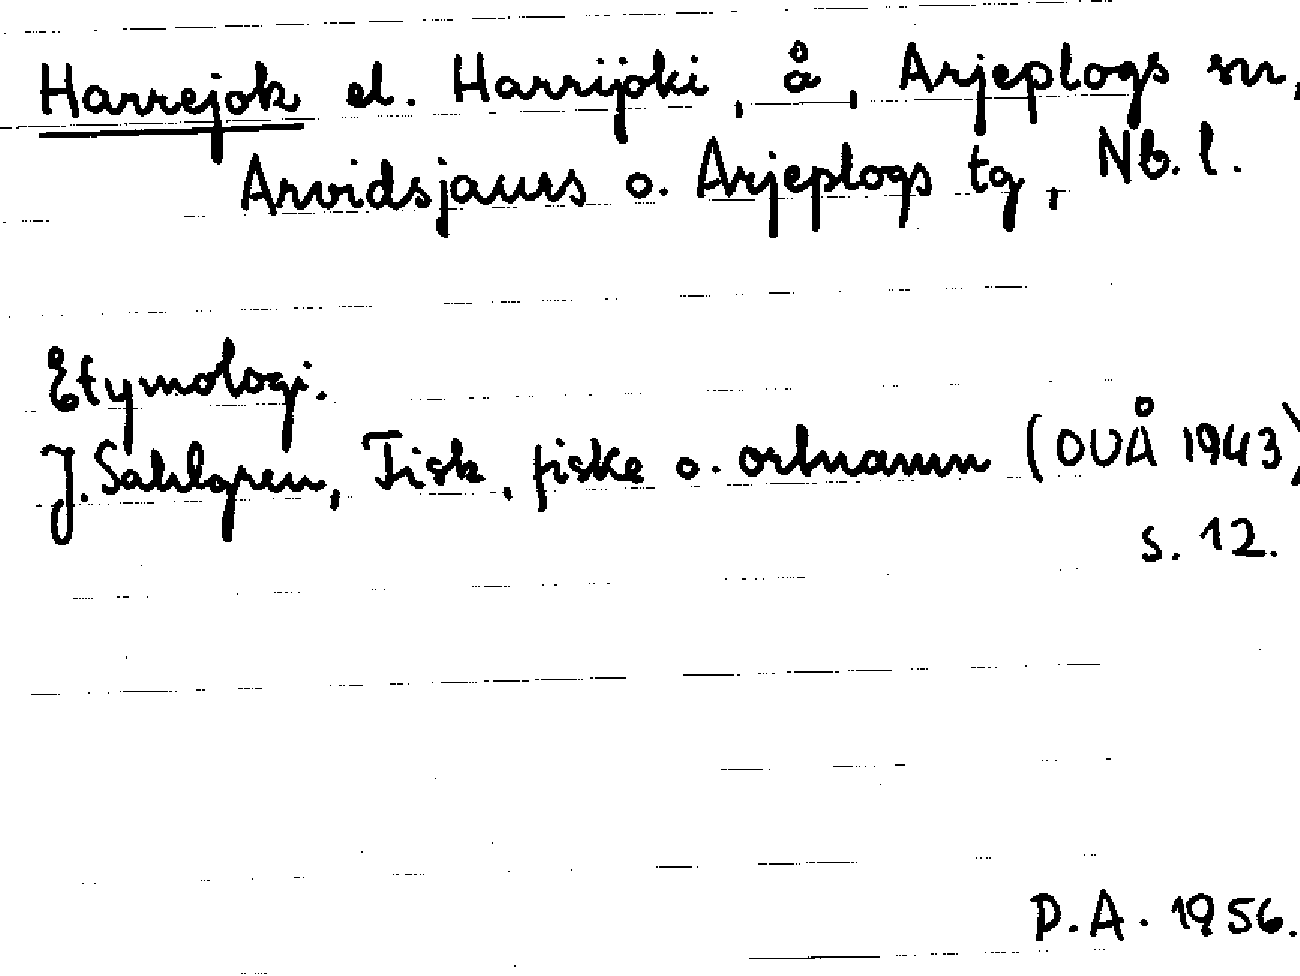 Harrejok el. Harrijoki, å, Arjeplogs sn,
Arvidsjaurs o. Arjeplogs tg, Nb. l.
Etymologi.
J. Sahlgren, Fisk, fiske o. ortnamn (OUÅ 1943)
s. 12.
P.A. 1956.